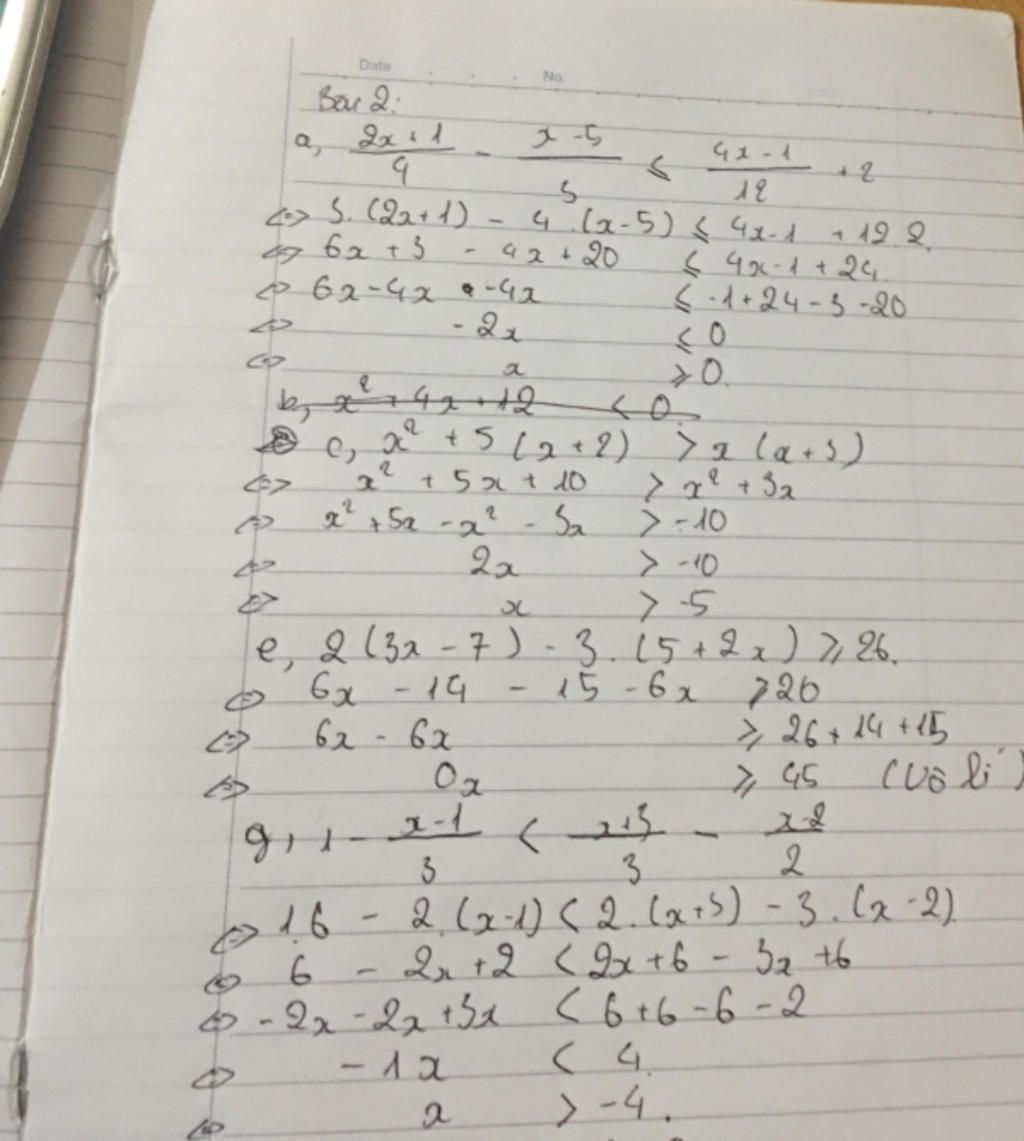 Date No.
Bài 2:
a, \frac{2x+1}{4} - \frac{x-5}{3} ≤ \frac{4x-1}{12} + 2
<=> 3.(2x+1) - 4.(x-5) ≤ 4x-1 + 12.2
<=> 6x + 3 - 4x + 20 ≤ 4x-1 + 24
<=> 6x-4x -4x ≤ -1+24-3-20
<=> -2x ≤ 0
<=> x ≥ 0.
b, x² + 4x + 12 < 0
c, x² + 5(x+2) > x(x+3)
<=> x² + 5x + 10 > x² + 3x
<=> x² + 5x - x² - 3x > -10
<=> 2x > -10
<=> x > -5
e, 2(3x-7) - 3.(5+2x) ≥ 26.
<=> 6x - 14 - 15 - 6x ≥ 26
<=> 6x - 6x ≥ 26+14+15
<=> 0x ≥ 45 (Vô lí)
g, 1 - \frac{x-1}{3} < \frac{x+3}{3} - \frac{x-2}{2}
<=> 1.6 - 2.(x-1) < 2.(x+3) - 3.(x-2)
<=> 6 - 2x + 2 < 2x + 6 - 3x + 6
<=> -2x - 2x + 3x < 6+6-6-2
<=> -1x < 4
<=> x > -4.